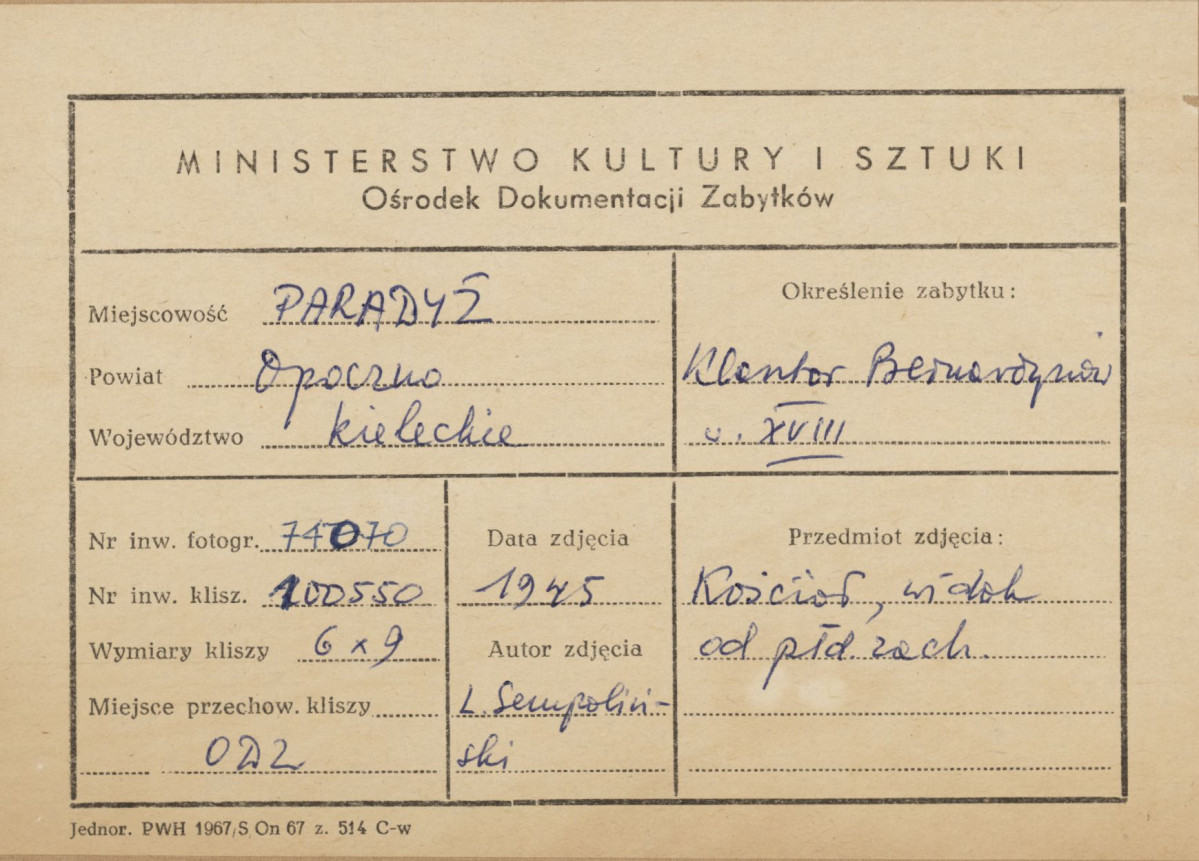 MINISTERSTWO KULTURY I SZTUKI
Ośrodek Dokumentacji Zabytków
Miejscowość PARADYŻ
Powiat Opoczno
Województwo kieleckie
Określenie zabytku:
Klasztor Bernardynów
w. XVIII
Nr inw. fotogr. 74070
Nr inw. klisz. 100550
Wymiary kliszy 6 x 9
Miejsce przechow. kliszy
ODZ
Data zdjęcia
1945
Autor zdjęcia
L. Sempoliń-
ski
Przedmiot zdjęcia:
Kościół, widok
od płd. zach.
Jednor. PWH 1967/S On 67 z. 514 C-w